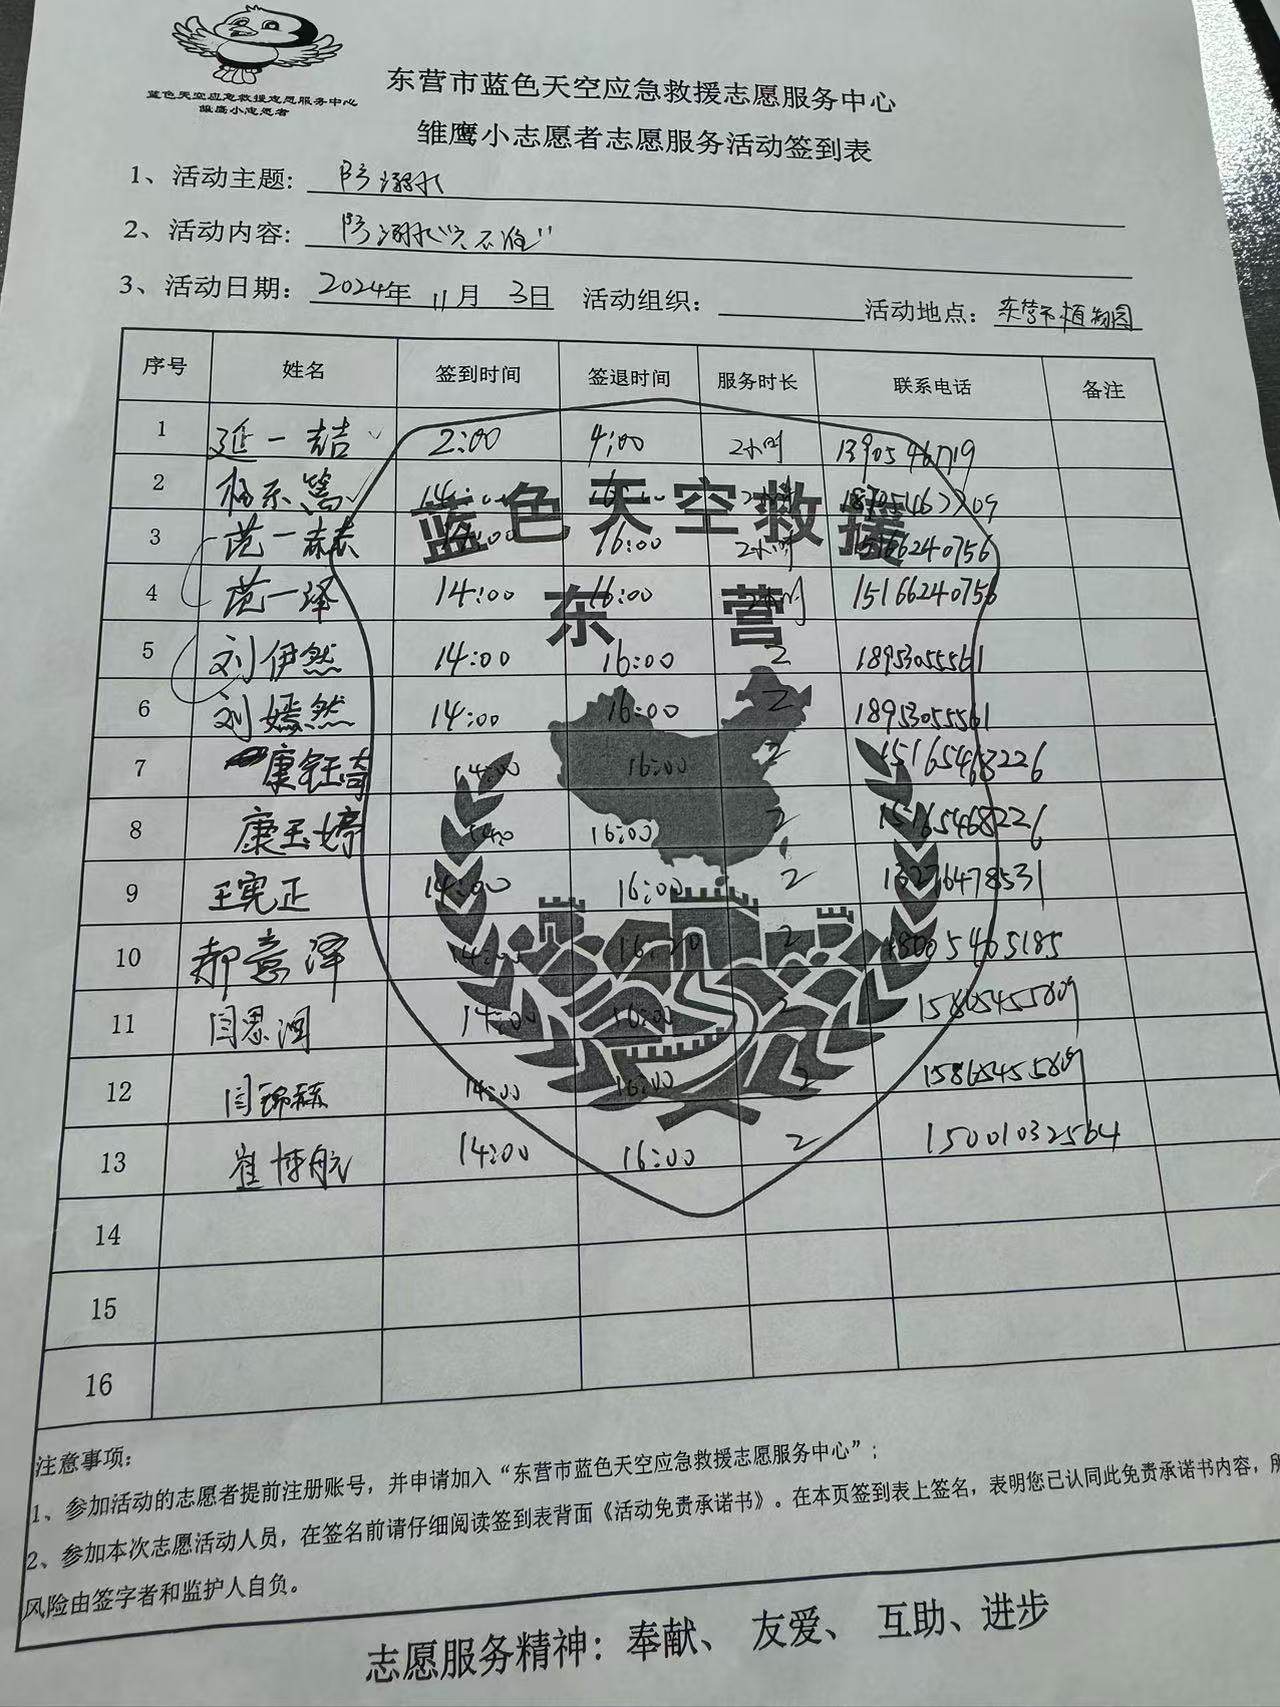 蓝色天空应急救援志愿服务中心
雏鹰小志愿者
东营市蓝色天空应急救援志愿服务中心
雏鹰小志愿者志愿服务活动签到表
1、活动主题: 防溺水
2、活动内容: 防溺水"六不准"
3、活动日期: 2024年 11月 3日 活动组织: 活动地点: 东营市植物园
序号 姓名 签到时间 签退时间 服务时长 联系电话 备注
1 延一喆 2:00 4:00 2小时
2 14:00 16:00 2小时
3 范一 14:00 16:00 2小时 15166240756
4 范一泽 14:00 16:00 2小时 15166240756
5 刘伊然 14:00 16:00 2 18953055561
6 刘嫣然 14:00 16:00 2 18953055561
7 康钰琦 14:00 16:00 2
8 康玉婷 16:00 2 15165468226
9 王宪正 14:00 16:00 2 13276478531
10 郝意泽 14:00 2 18005465185
11 闫思润 14:00 16:00 2
12 闫锦赫 14:00 16:00 2
13 崔博航 14:00 16:00 2 15001032564
14
15
16
蓝色天空救援
东营
注意事项:
1、参加活动的志愿者提前注册账号，并申请加入“东营市蓝色天空应急救援志愿服务中心”;
2、参加本次志愿活动人员，在签名前请仔细阅读签到表背面《活动免责承诺书》。在本页签到表上签名，表明您已认同此免责承诺书内容，所
风险由签字者和监护人自负。
志愿服务精神: 奉献、 友爱、 互助、进步